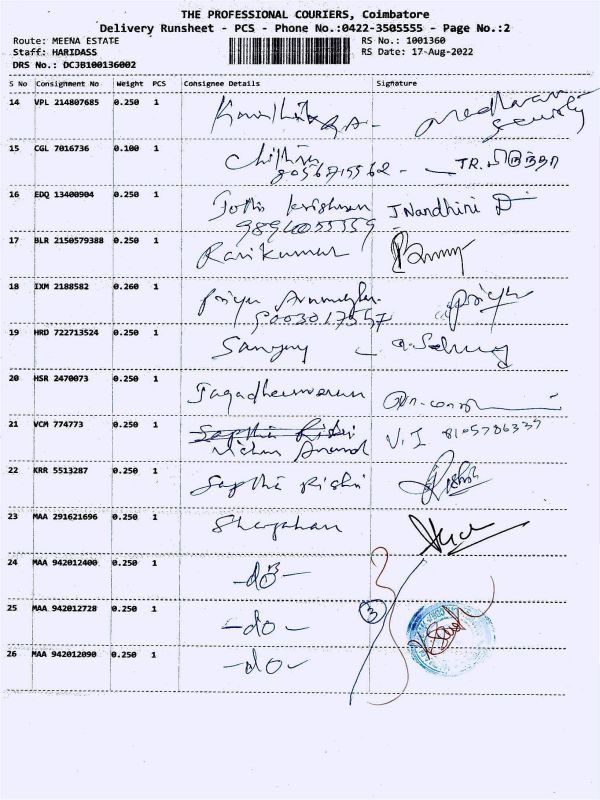 THE PROFESSIONAL COURIERS, Coimbatore
Delivery Runsheet - PCS - Phone No.:0422-3505555 - Page No.:2
Route: MEENA ESTATE
RS No.: 1001360
Staff: HARIDASS
RS Date: 17-Aug-2022
DRS No.: DCJB100136002
S No Consignment No Weight PCS Consignee Details Signature
14 VPL 214807685 0.250 1
15 CGL 7016736 0.100 1
16 EDQ 13400904 0.250 1 Krishnan J Nandhini D
17 BLR 2150579388 0.250 1 Ravi kumar
18 IXM 2188582 0.260 1 priya priya
9003017557
19 HRD 722713524 0.250 1 Sanjay
20 HSR 2470073 0.250 1
21 VCM 774773 0.250 1 Sapthi Rishi V. I
Anand
22 KRR 5513287 0.250 1 Sapthi Rishi Rishi
23 MAA 291621696 0.250 1
24 MAA 942012400 0.250 1 -do-
25 MAA 942012728 0.250 1 -do- 3
26 MAA 942012090 0.250 1 -do-